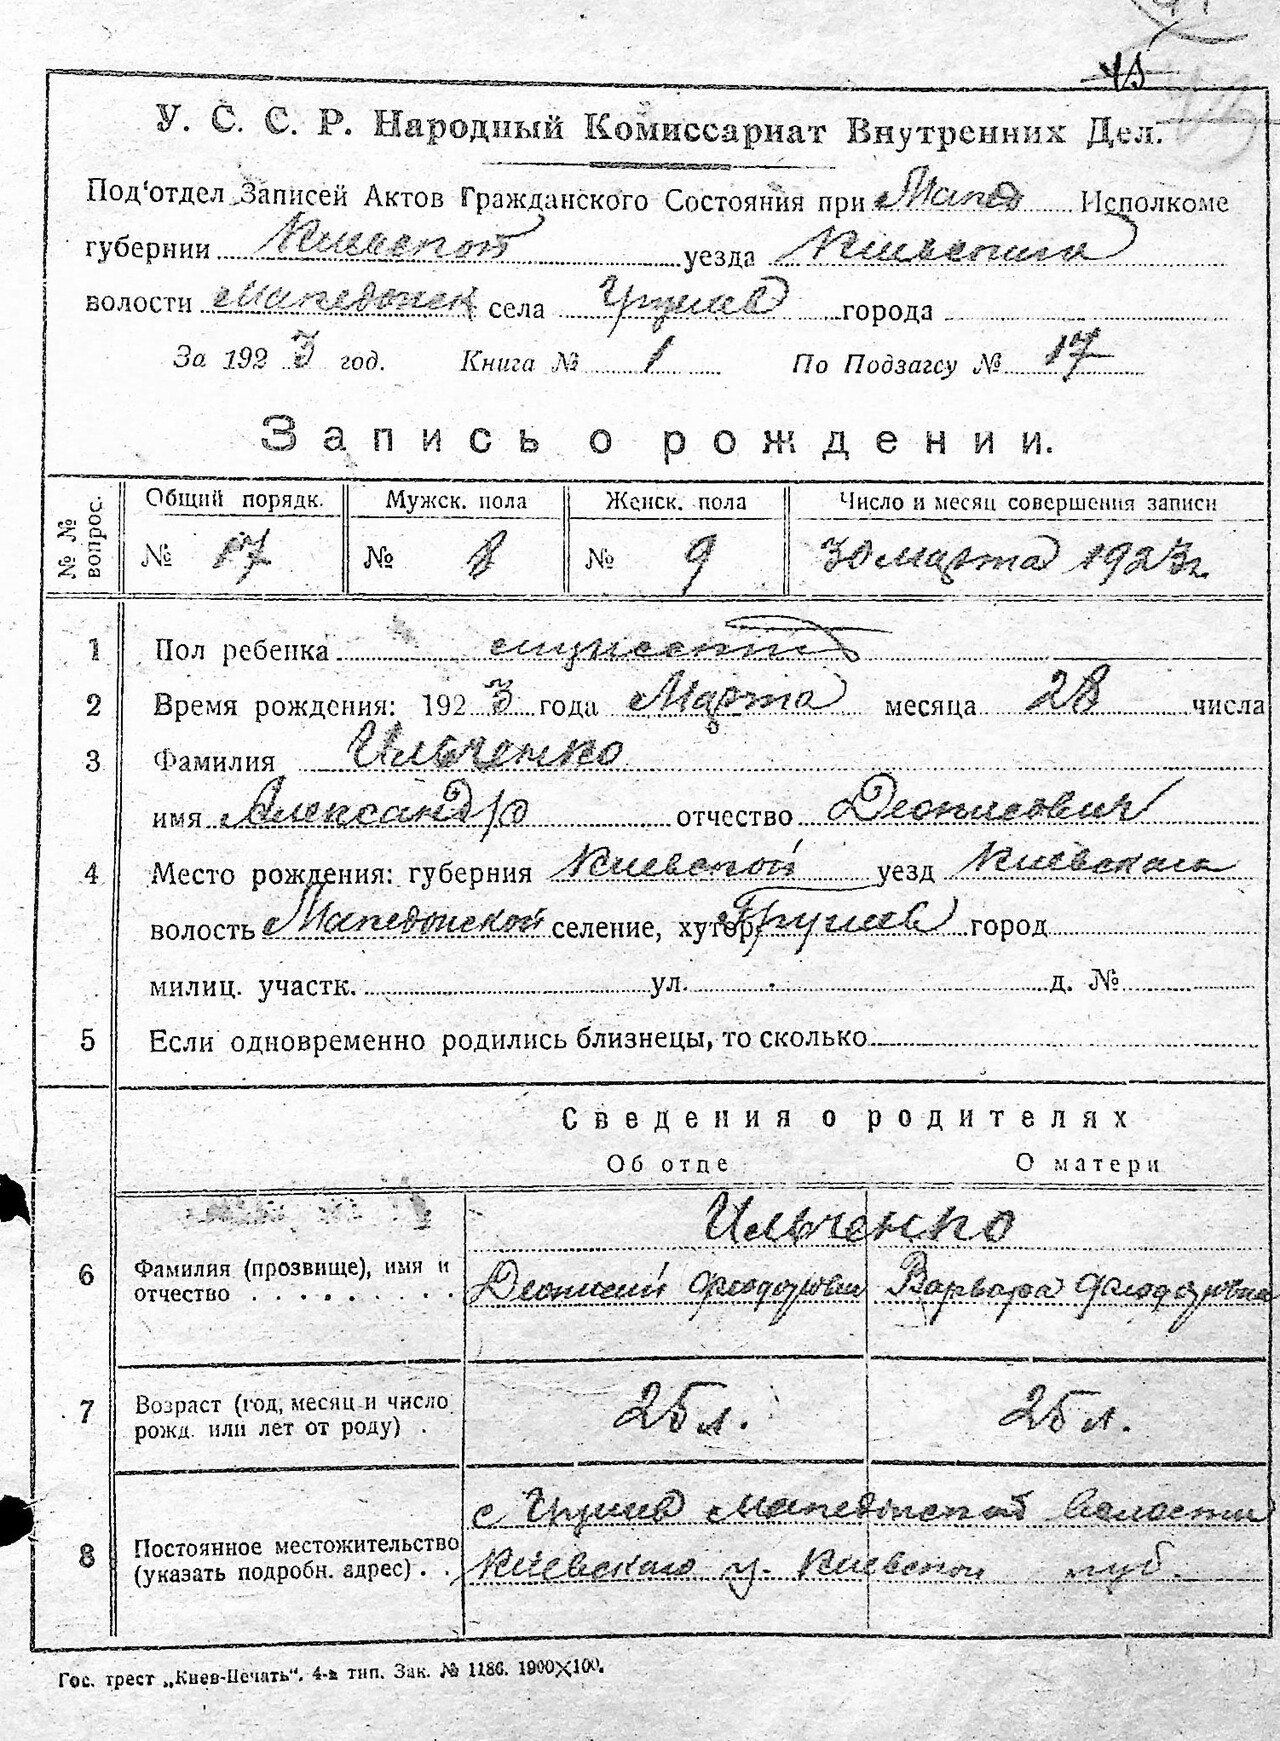 У. С. С. Р. Народный Комиссариат Внутренних Дел.
Под‘отдел Записей Актов Гражданского Состояния при Макед Исполкоме
губернии Киевской уезда Киевскаго
волости Македонск села Грушев города
За 1923 год. Книга № 1 По Подзагсу № 17
Запись о рождении.
№ № вопрос. Общий порядк. Мужск. пола Женск. пола Число и месяц совершения записи
№ 17 № 8 № 9 30 марта 1923 г.
1 Пол ребенка мужеский
2 Время рождения: 1923 года Марта месяца 28 числа
3 Фамилия Ильченко
имя Александр отчество Деонисович
4 Место рождения: губерния Киевской уезд Киевскаго
волость Македонской селение, хутор Грушев город
милиц. участк. ул. д. №
5 Если одновременно родились близнецы, то сколько
Сведения о родителях
Об отце О матери
Ильченко
6 Фамилия (прозвище), имя и отчество Деонисий Феодорович Варвара Феодоровна
7 Возраст (год, месяц и число рожд. или лет от роду) . 25 л. 25 л.
8 Постоянное местожительство (указать подробн. адрес) . . с Грушев Македонской волости
Киевскаго у. Киевской губ.
Гос. трест „Киев-Печать“. 4-я тип. Зак. № 1186. 1900×100.